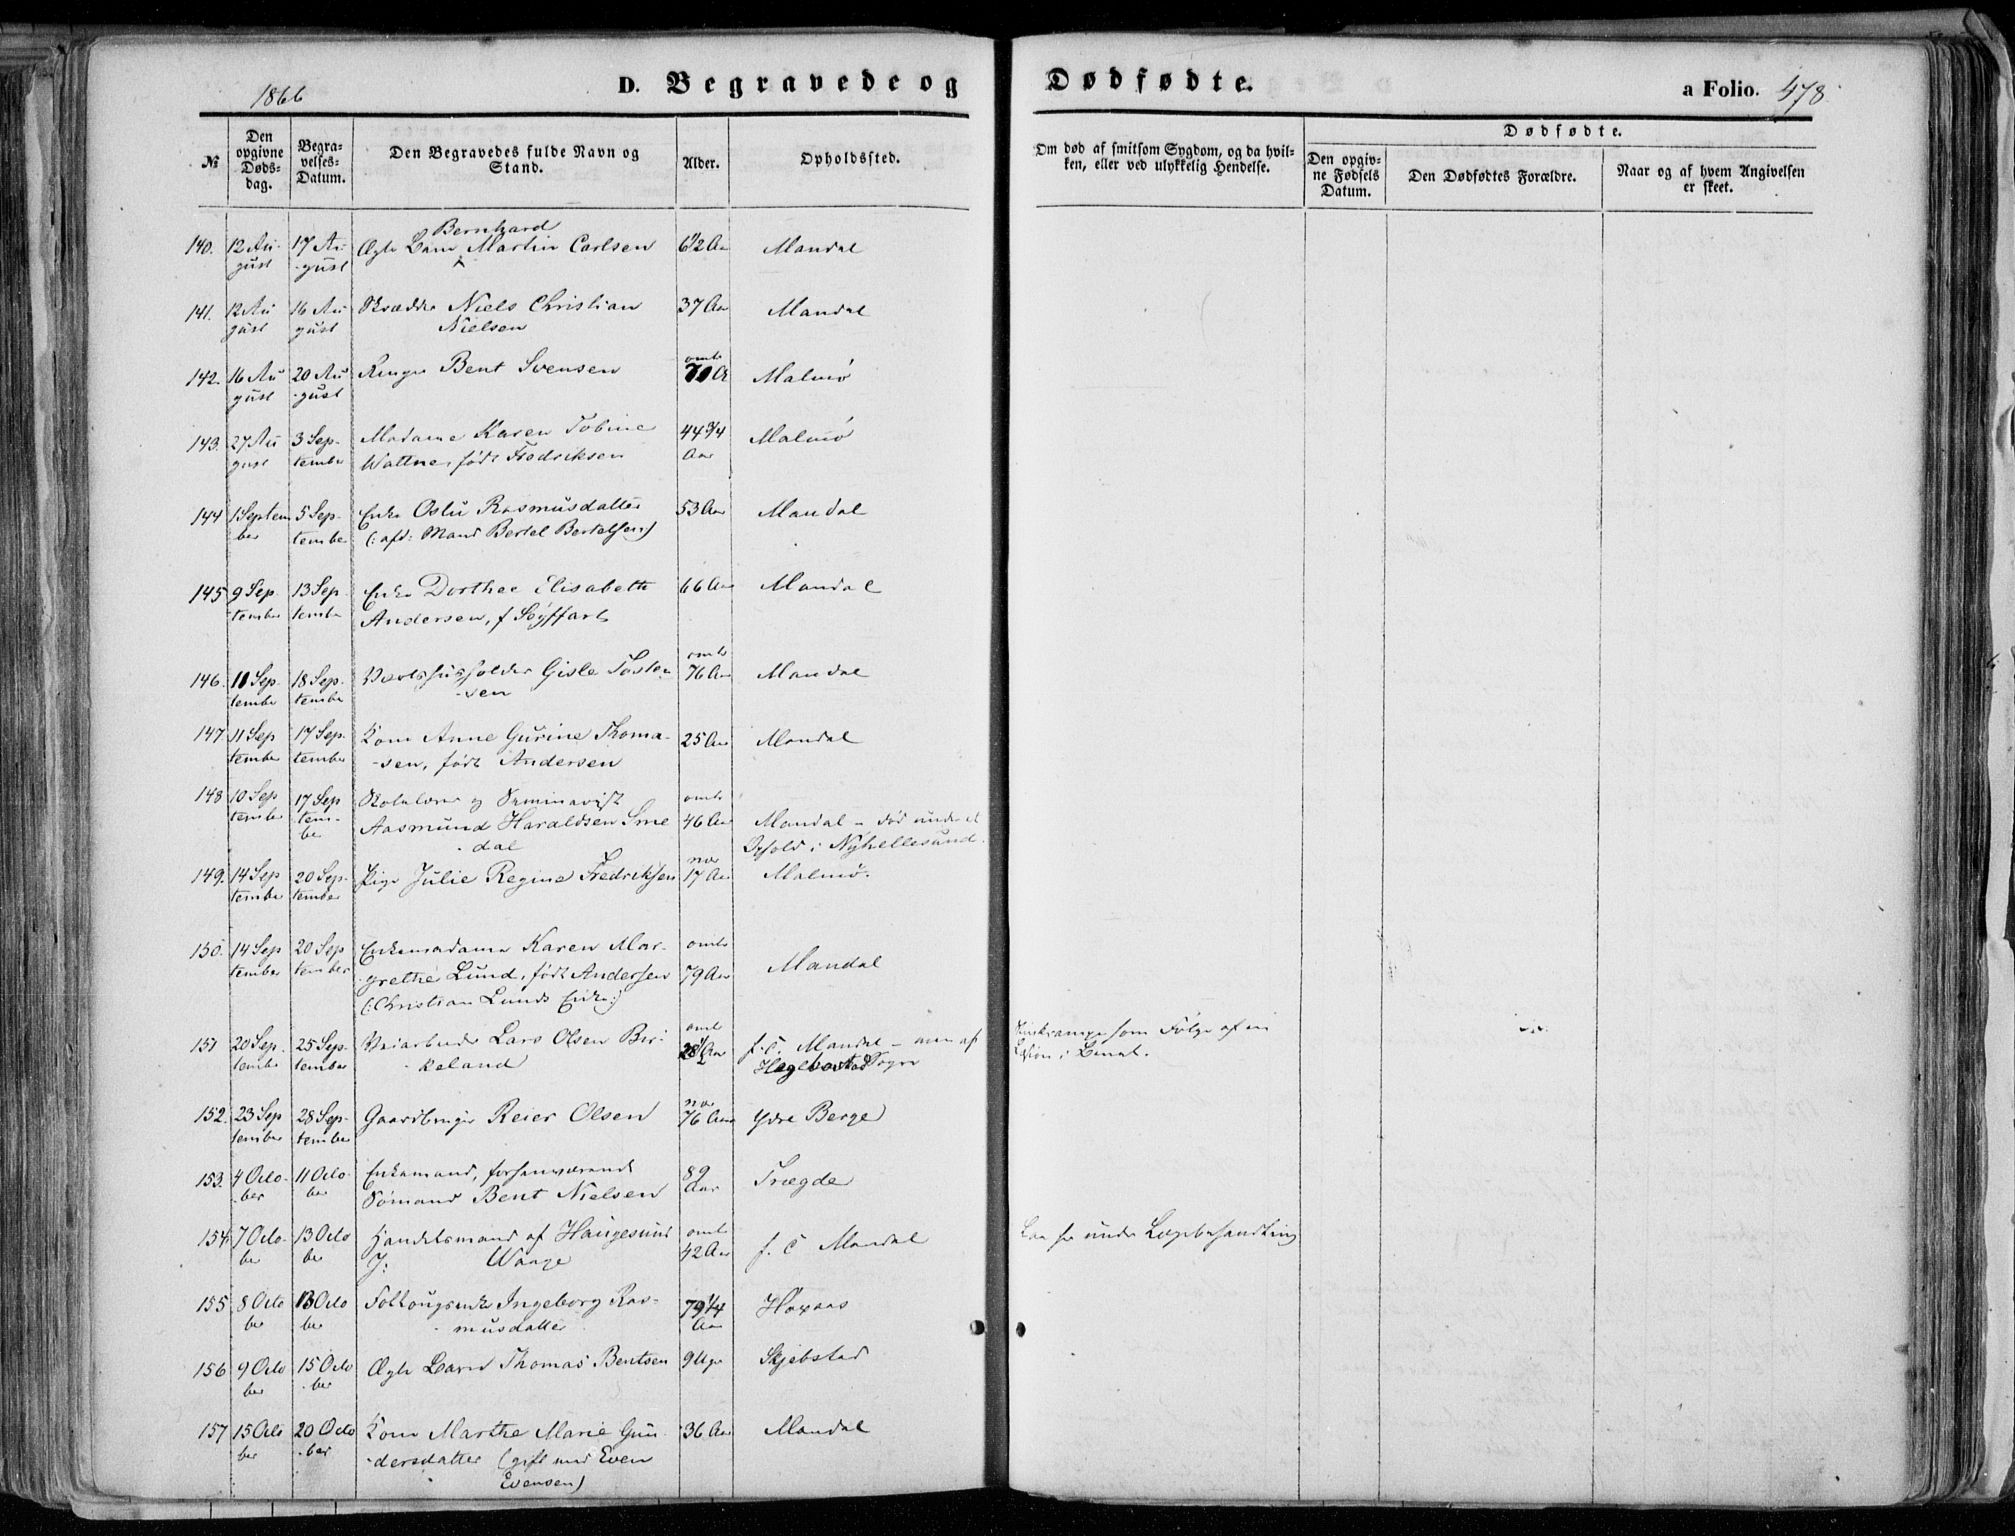 1866
D. Begravede og Dødfødte.
a Folio. 478
№
Den opgivne Dødsdag.
Begravelses-Datum.
Den Begravedes fulde Navn og Stand.
Alder.
Opholdssted.
Om død af smitsom Sygdom, og da hvilken, eller ved ulykkelig Hendelse.
Dødfødte.
Den opgivne Fødsels Datum.
Den Dødfødtes Forældre.
Naar og af hvem Angivelsen er skeet.
140. 12 August 17 August Ægte Barn Bernhard Martin Carlsen 6 1/2 Aar Mandal
141. 12 August 16 August Skrædder Niels Christian
Nielsen 37 Aar Mandal
142. 16 August 20 August Ringer Bent Svensen omtr 70 A Malmø
143. 27 August 3 September Madame Karen Tobine
Wattne, født Fredriksen 44 3/4 Aar Malmø
144 1 September 5 September Enke Oslu Rasmusdatter
(: afd: Mand Bertel Bertelsen) 53 Aar Mandal
145 9 September 13 September Enke Dorthee Elisabeth
Andersen, f Søyffarth 66 Aar Mandal
146. 11 September 18 September Gisle Tosten-
-sen omtr 76 Aar Mandal
147 11 September 17 September Kone Anne Gurine Thoma-
-sen, født Andersen 25 Aar Mandal
148 10 September 17 September Skolelærer og Seminarist
Aasmund Haraldsen Sme
-dal omtr 46 Aar Mandal - død under et
Ophold i Nyhellesund.
149. 14 September 20 September Pige Julie Regine Fredriksen nær 17 Aar Malmø.
150. 14 September 20 September Enkemadame Karen Mar-
grethe Lund, født Andersen
(: Christian Lunds Enke:) omtr 79 Aar Mandal
151 20 September 25 September Veiarbeider Lars Olsen Bir-
-keland omt 28 1/2 Aar f. t. Mandal - men af
Hegebostad Sogn
som Følge af en
i Benet.
152. 23 September 28 September Gaardbruger Reier Olsen nær 76 Aar Ydre Berge
153. 4 October 11 October Enkemand, forhenværende
Sømand Bent Nielsen 89 Aar Trægde
154. 7 October 13 October Handelsmand af Haugesund
J: Waage omtr 42 Aar f. t. Mandal
Laa her under Lægebehandling
155 8 October 13 October Follougsenke Ingeborg Ras-
musdatter 79 1/4 Aar Høxaas
156 9 October 15 October Ægte Barn Thomas Bentsen 9 Uger Skjebstad
157 15 October 20 October Kone Marthe Marie Gun
-dersdatter (gift med Even
Evensen) 36 Aar Mandal